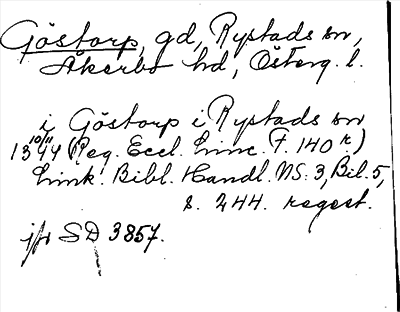 Göstorp, gd, Rystads sn,
Åkerbo hd, Österg. l.
i Göstorp i Rystads sn
10/11
1344 (Reg. Eccl. Linc. F. 140 r)
Link. Bibl. Handl. NS: 3, Bil. 5,
s. 244. regest.
jfr SD 3857.